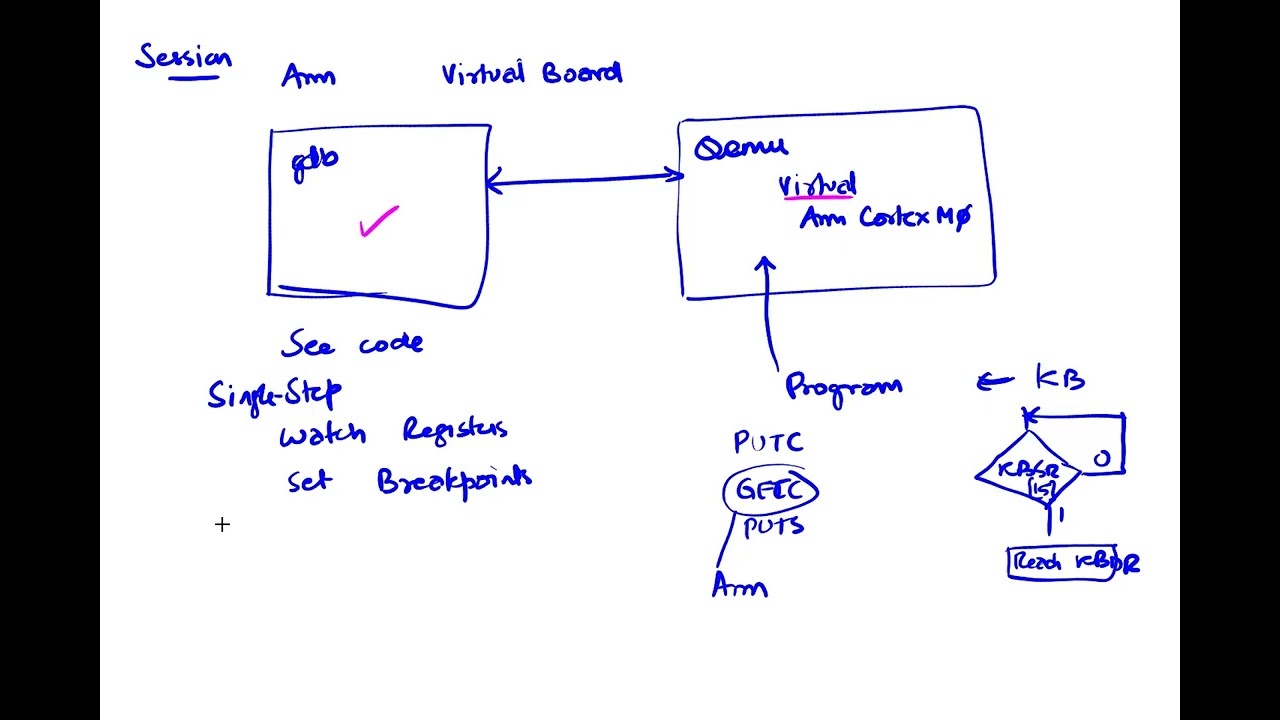 Session
Arm
Virtual Board
gdb
Qemu
Virtual
Arm Cortex M0
See code
Single-Step
Watch Registers
Set Breakpoints
Program
← KB
PUTC
GETC
PUTS
Arm
KBSR
[15]
0
1
Read KBDR